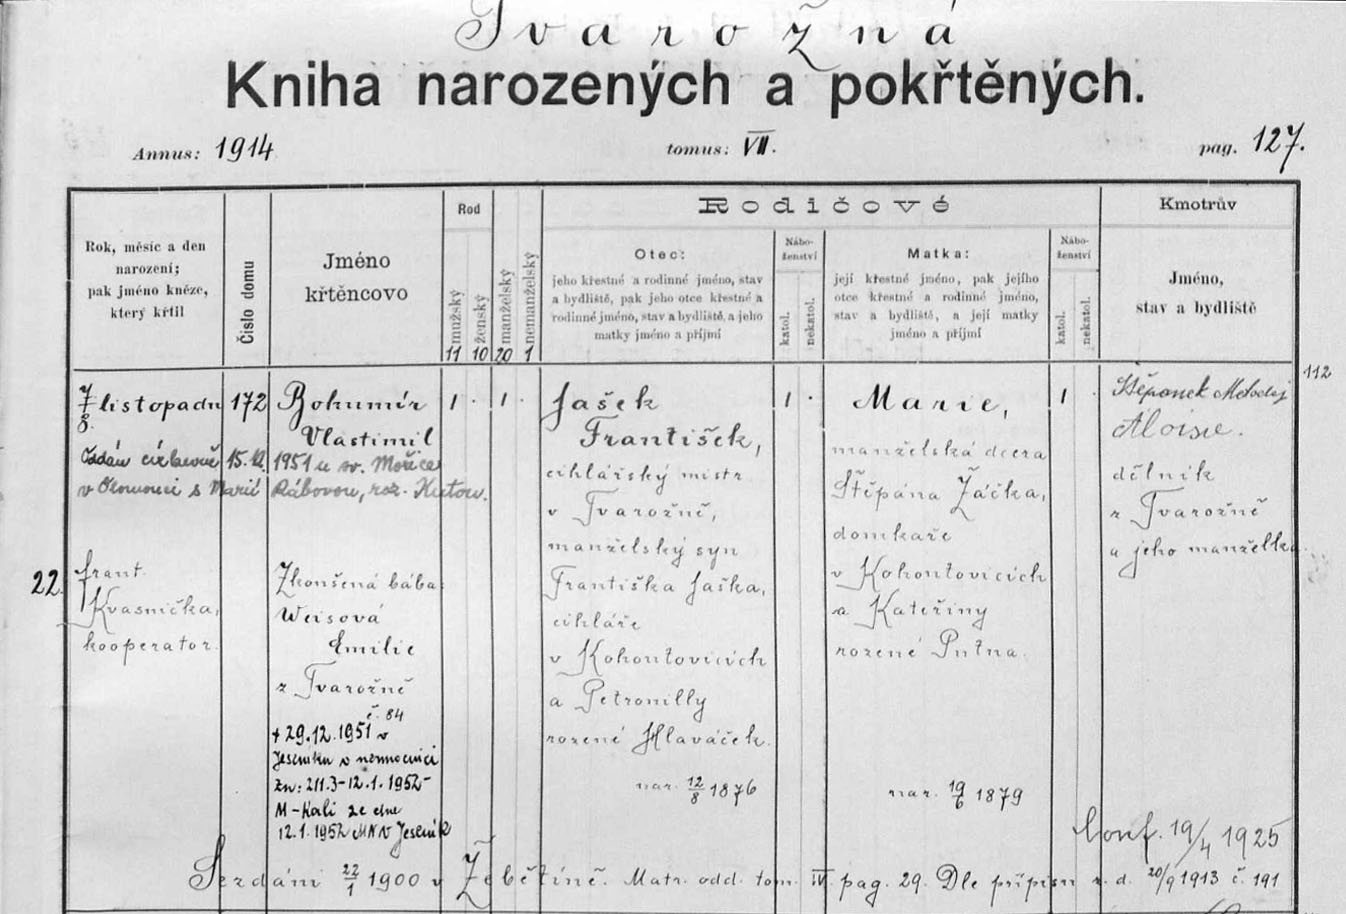 Tvarožná
Kniha narozených a pokřtěných.
Annus: 1914
tomus: VII.
pag. 127.
Rok, měsíc a den
narození;
pak jméno kněze,
který křtil
Číslo domu
Jméno
křtěncovo
Rod
mužský
ženský
manželský
nemanželský
11 10 20 1
Rodičové
Otec:
jeho křestné a rodinné jméno, stav
a bydliště, pak jeho otce křestné a
rodinné jméno, stav a bydliště, a jeho
matky jméno a příjmí
Nábo-
ženství
katol.
nekatol.
Matka:
její křestné jméno, pak jejího
otce křestné a rodinné jméno,
stav a bydliště, a její matky
jméno a příjmí
Nábo-
ženství
katol.
nekatol.
Kmotrův
Jméno,
stav a bydliště
112
22.
7 listopadu
8.
172
Bohumír
Vlastimil
1 . 1 .
Oddán církevně 15.12. 1951 u sv. Mořice
v Olomouci s Marií Rábovou, roz.
Frant.
Kvasnička,
kooperator.
Zkoušená bába:
Weisová
Emilie
z Tvarožné
č. 84
+ 29.12.1951 v
Jeseníku v nemocnici
zn: 211.3-12.1.1952
ze dne
12.1.1952 MNV Jeseník
Jašek
František,
cihlářský mistr
v Tvarožně,
manželský syn
Františka Jaška,
cihláře
v Kohoutovicích
a Petronilly
rozené Hlaváček.
nar. 12/8 1876
1 .
Marie,
manželská dcera
Štěpána Žáčka,
domkaře
v Kohoutovicích
a Kateřiny
rozené Putna.
nar. 19/6 1879
1 .
Štěpanek Metoděj
Aloisie.
dělník
z Tvarožné
a jeho manželka
Conf. 19/4 1925
Sezdáni 22/1 1900 v Žebětíně. Matr. odd. tom. IV. pag. 29. Dle přípisu z. d. 20/9 1913 č. 191